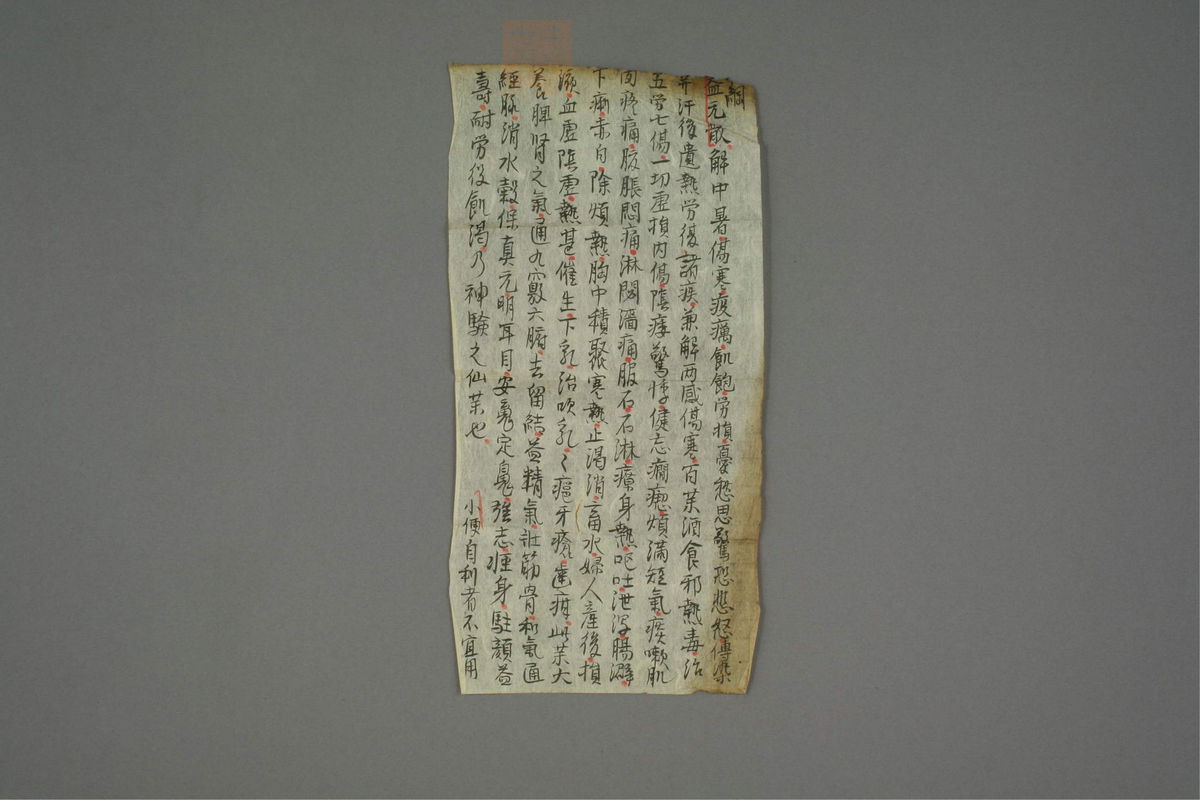 綱
益元散解中暑傷寒疫癘飢飽労損憂愁思驚恐悲怒傳染
并汗後遺熱労復諸疾兼解両感傷寒百薬酒食邪熱毒治
五労七傷一切虚損内傷陰痿驚悸健忘癇瘛煩満短氣痰嗽肌
肉疼痛腹脹悶痛淋閟濇痛服石石淋療身熱嘔吐泄瀉腸澼
下痢赤白除煩熱胸中積聚寒熱止渇消畜水婦人産後損
液血虚陰虚熱甚催生下乳治吹乳〻癰牙瘡齒疳此薬大
養脾腎之氣通九竅六腑去留結益精氣壮筋骨和氣通
經脉消水穀保真元明耳目安魂定魄強志軽身駐顔益
壽耐労役飢渇乃神驗之仙薬也
小便自利者不宜用